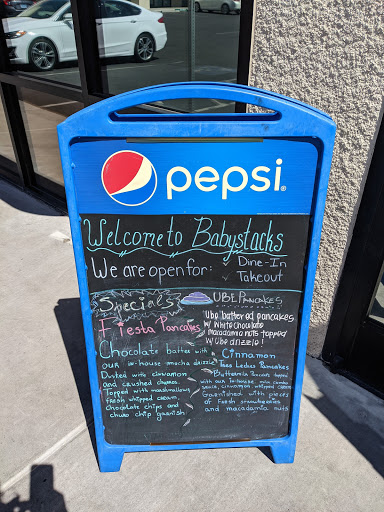 pepsi
Welcome to Babystacks
We are open for: ✓ Dine-In
✓ Takeout
Specials
Fiesta Pancakes
Chocolate batter with
our in-house mocha drizzle
Dusted with cinnamon
and crushed
Topped with marshmallows
fresh whipped cream,
chocolate chips and
churo chip garnish
UBE PANCAKES
Ube battered pancakes
w/ White Chocolate
Macadamia nuts topped
w/ Ube drizzle!
Cinnamon
Tres Leches Pancakes
Buttermilk
with our in-house
cinnamon whipped cream
Garnished with pieces
of fresh strawberries
and macadamia nuts